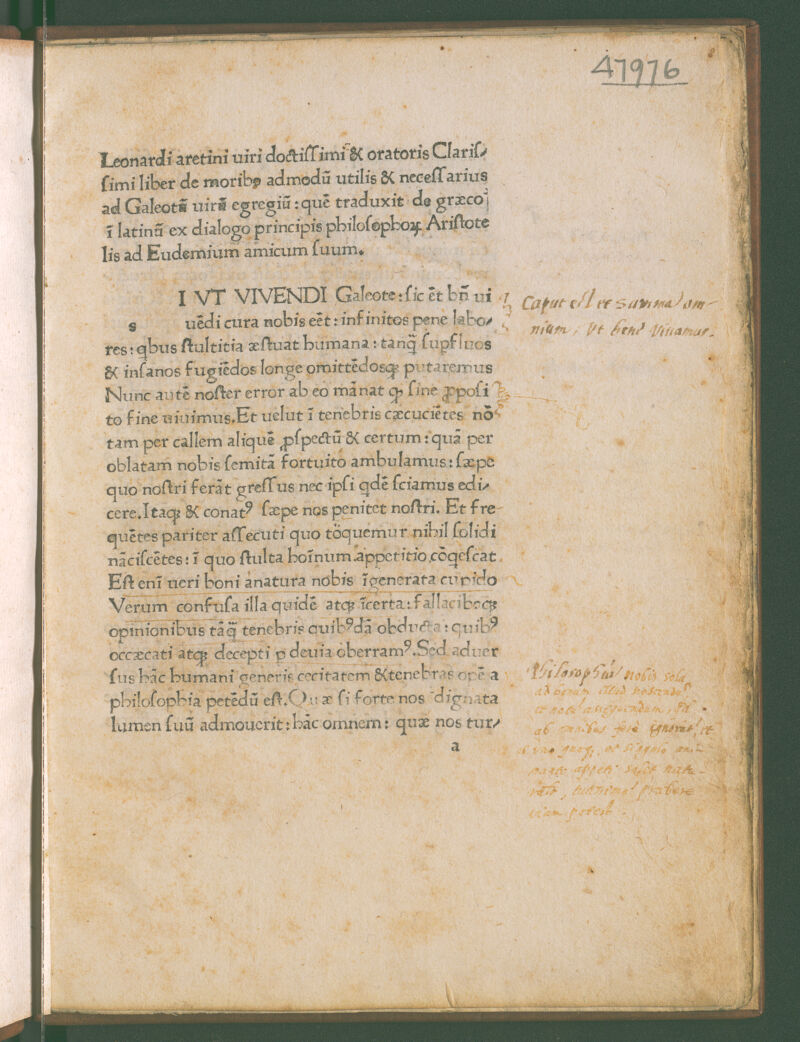 47976
Leonardi aretini uiri doctiſſimi & oratoris Clariſ⸗
ſimi liber de moribꝰ admodū utilis & neceſſarius
ad Galeotū uirū egregiū : quē traduxit de græco
ī latinū ex dialogo principis philoſophoꝝ Ariſtote
lis ad Eudemium amicum ſuum.
I VT VIVENDI Galeote : ſic ēt bn̄ ui
s uēdi cura nobis eēt : infinitos pene labo⸗
res : qbus ſtultitia æſtuat humana : tanq̄ ſupfluos
& inſanos fugiēdos longe omittēdosqꝫ putaremus
Nunc autē noſter error ab eo mānat qꝫ ſine ꝓpoſi
to fine uiuimus. Et uelut ī tenebris cæcuciētes nō
tam per callem aliquē ꝓſpectū & certum : quā per
oblatam nobis ſemitā fortuito ambulamus : ſæpe
quo noſtri ferāt greſſus nec ipſi qdē ſciamus edi⸗
cere. Itaqꝫ & conatꝰ ſæpe nos penitet noſtri. Et fre
quētes pariter aſſecuti quo tōquemur nihil ſolidi
nāciſcētes : ī quo ſtulta hoīnum appetitio cōqeſcat
Eſt enī ueri boni anatura nobis īgenerata cupido
Verum confuſa illa quidē atqꝫ īcerta : fallacibꝰqꝫ
opinionibus tāq̄ tenebris quibꝰdā obducta : quibꝰ
occæcati atqꝫ decepti p deuia oberramꝰ. Sed aduer
ſus hāc humani generis cecitatem & tenebras opē a
philoſophia petēdū eſt. Quæ ſi forte nos dignata
lumen ſuū admouerit : hāc omnem : quæ nos tur⸗
a
Caput est et summa om-
nium, Vt bene Viuamus.
Philosophia nobis sola
ab omnibus fere ignoratur, et
viam potest.